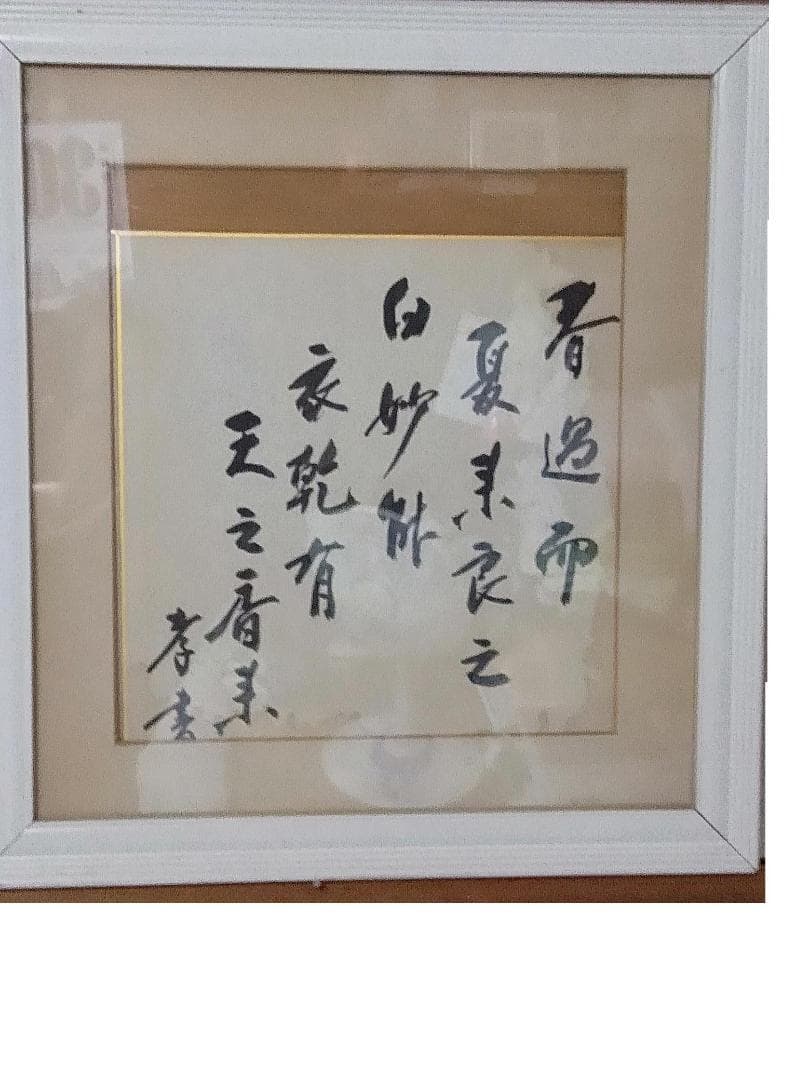 春過而
夏来良之
白妙能
衣乾有
天之香来
孝書